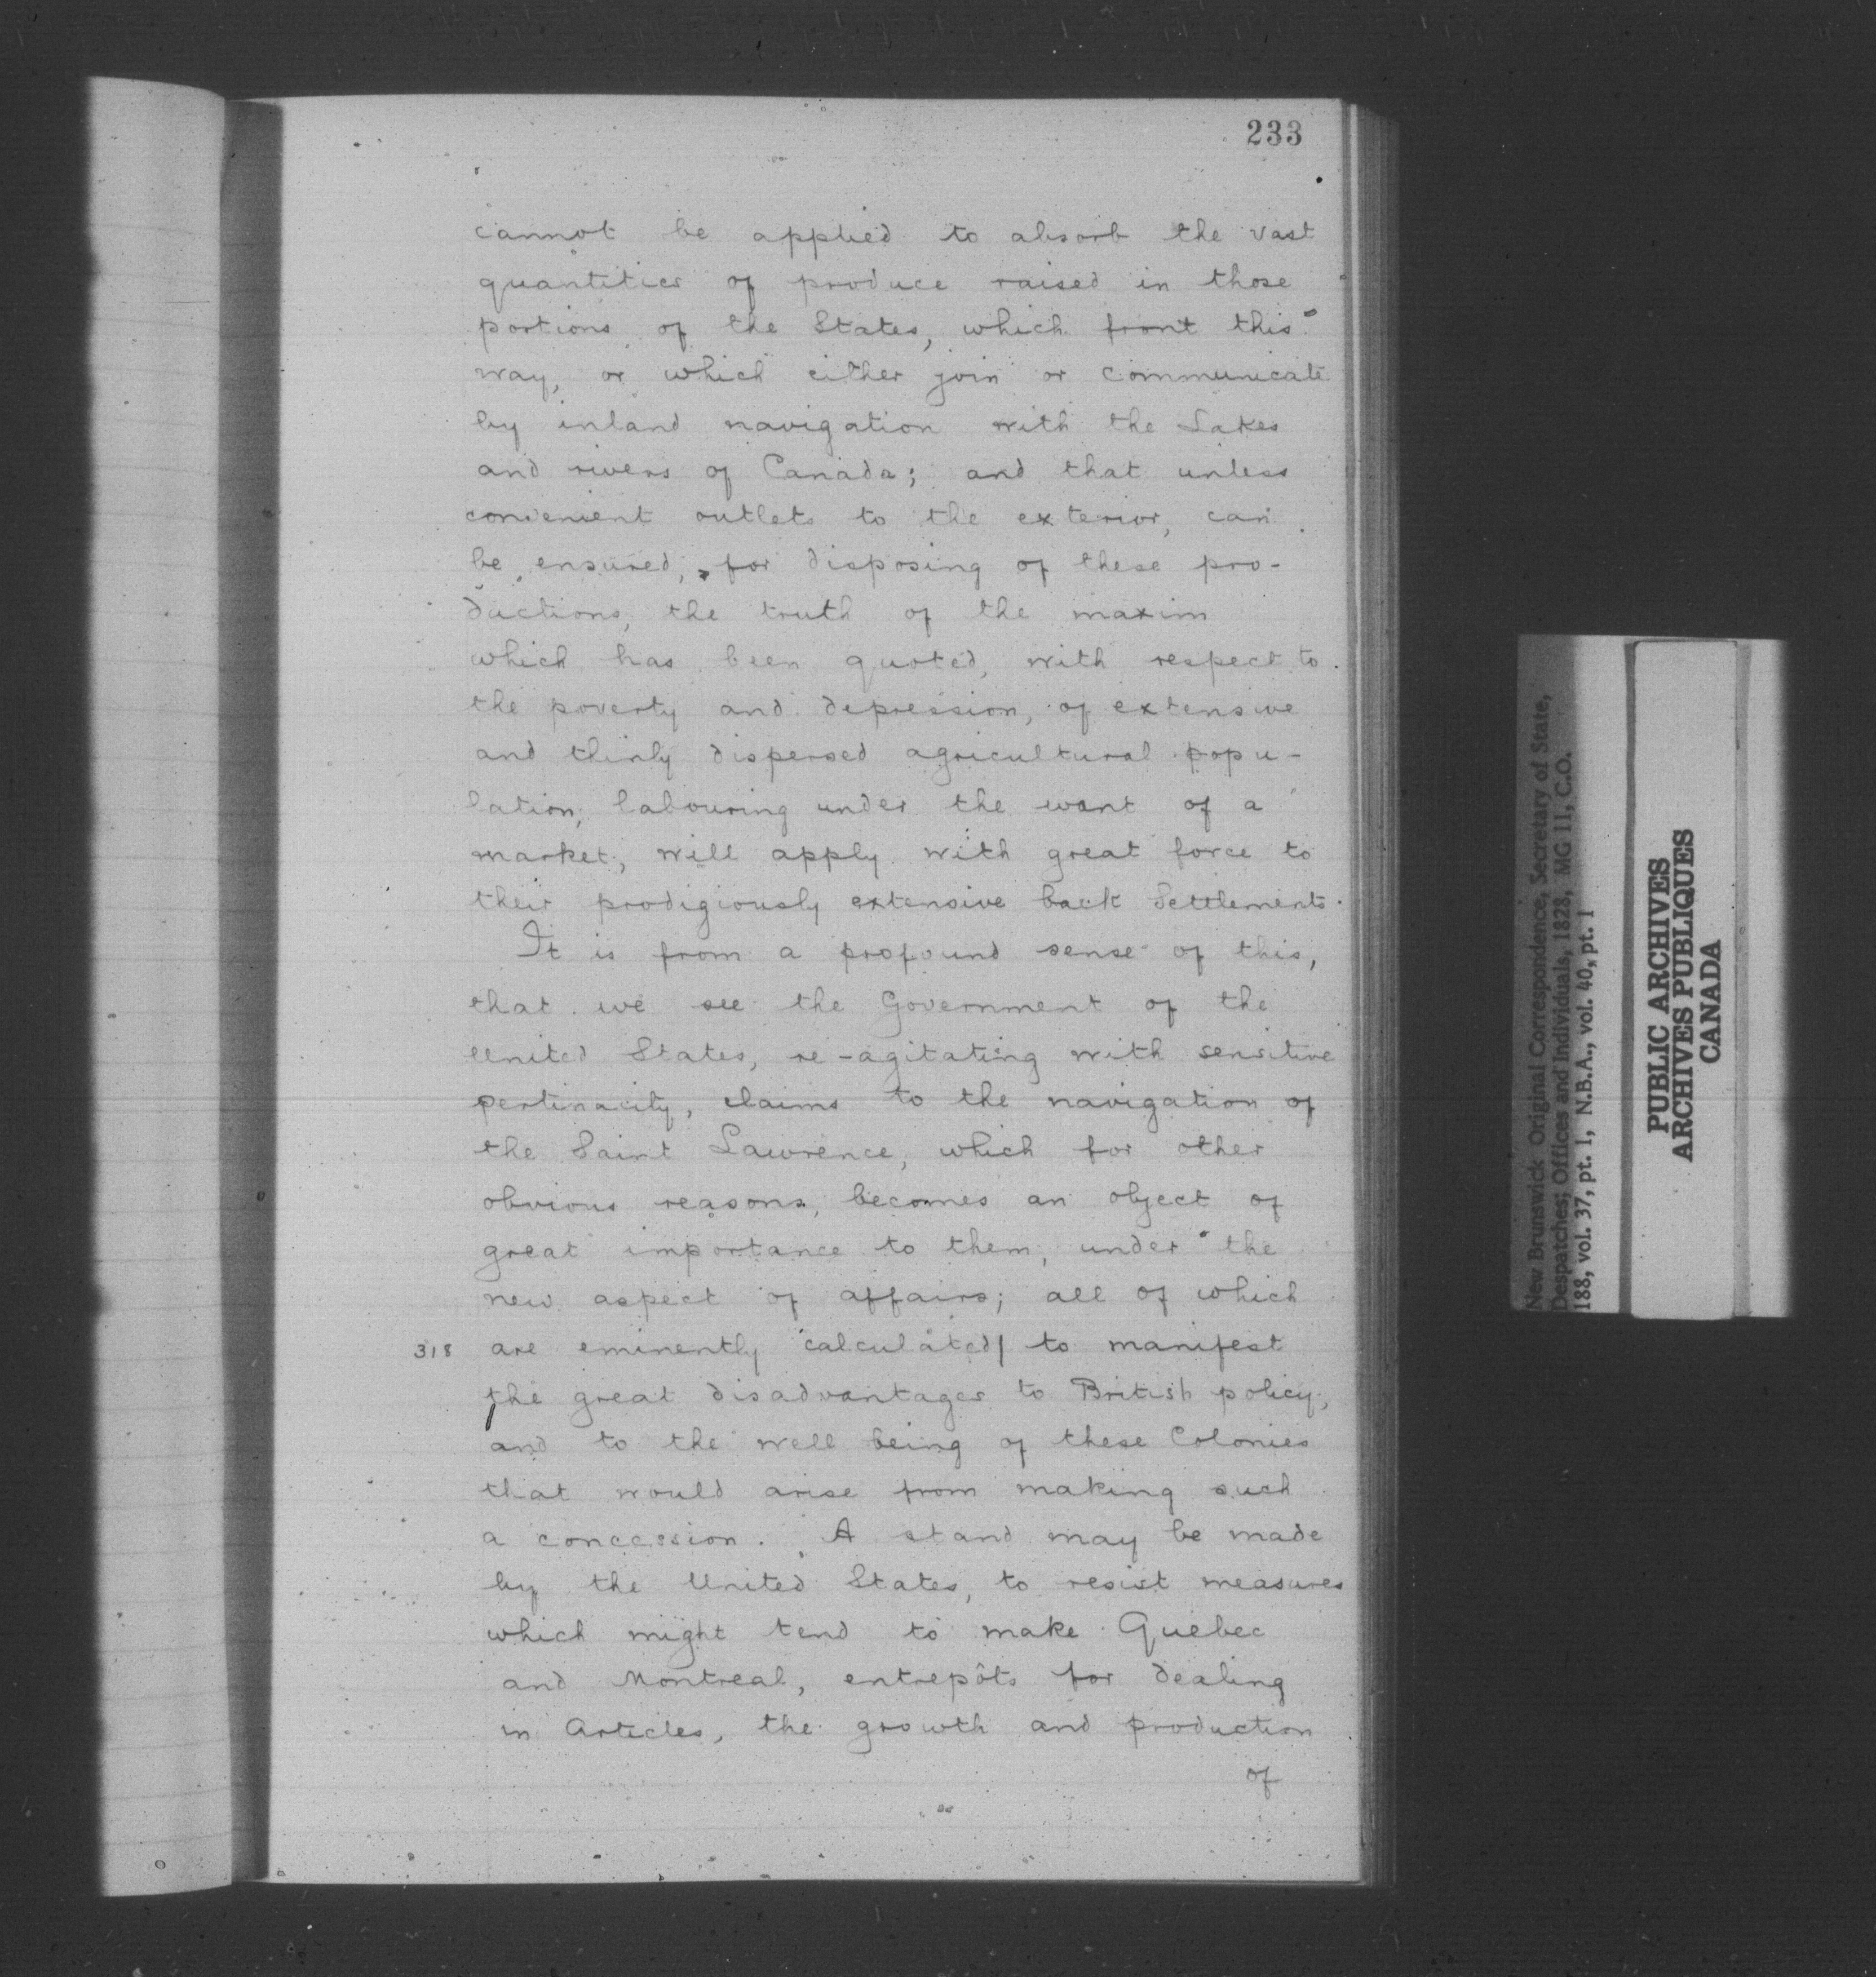 233
cannot be applied to absorb the vast
quantities of produce raised in those
portions of the States, which front this
way, or which either join or communicate
by inland navigation with the Lakes
and rivers of Canada; and that unless
convenient outlets to the exterior, can
be ensured, for disposing of these pro-
ductions, the truth of the maxim
which has been quoted, with respect to
the poverty and depression, of extensive
and thinly dispersed agricultural popu-
lation, labouring under the want of a
market, will apply with great force to
their prodigiously extensive back Settlements.
It is from a profound sense of this,
that we see the Government of the
United States, re-agitating with sensitive
pertinacity, claims to the navigation of
the Saint Lawrence, which for other
obvious reasons, becomes an object of
great importance to them, under the
new aspect of affairs; all of which
318 are eminently calculated/ to manifest
the great disadvantages to British policy,
and to the well being of these Colonies
that would arise from making such
a concession. A stand may be made
by the United States, to resist measures
which might tend to make Quebec
and Montreal, entrepôts for dealing
in Articles, the growth and production
of
New Brunswick Original Correspondence, Secretary of State,
Despatches; Offices and Individuals, 1828, MG 11, C.O.
188, vol. 37, pt. 1, N.B.A., vol. 40, pt. 1
PUBLIC ARCHIVES
ARCHIVES PUBLIQUES
CANADA